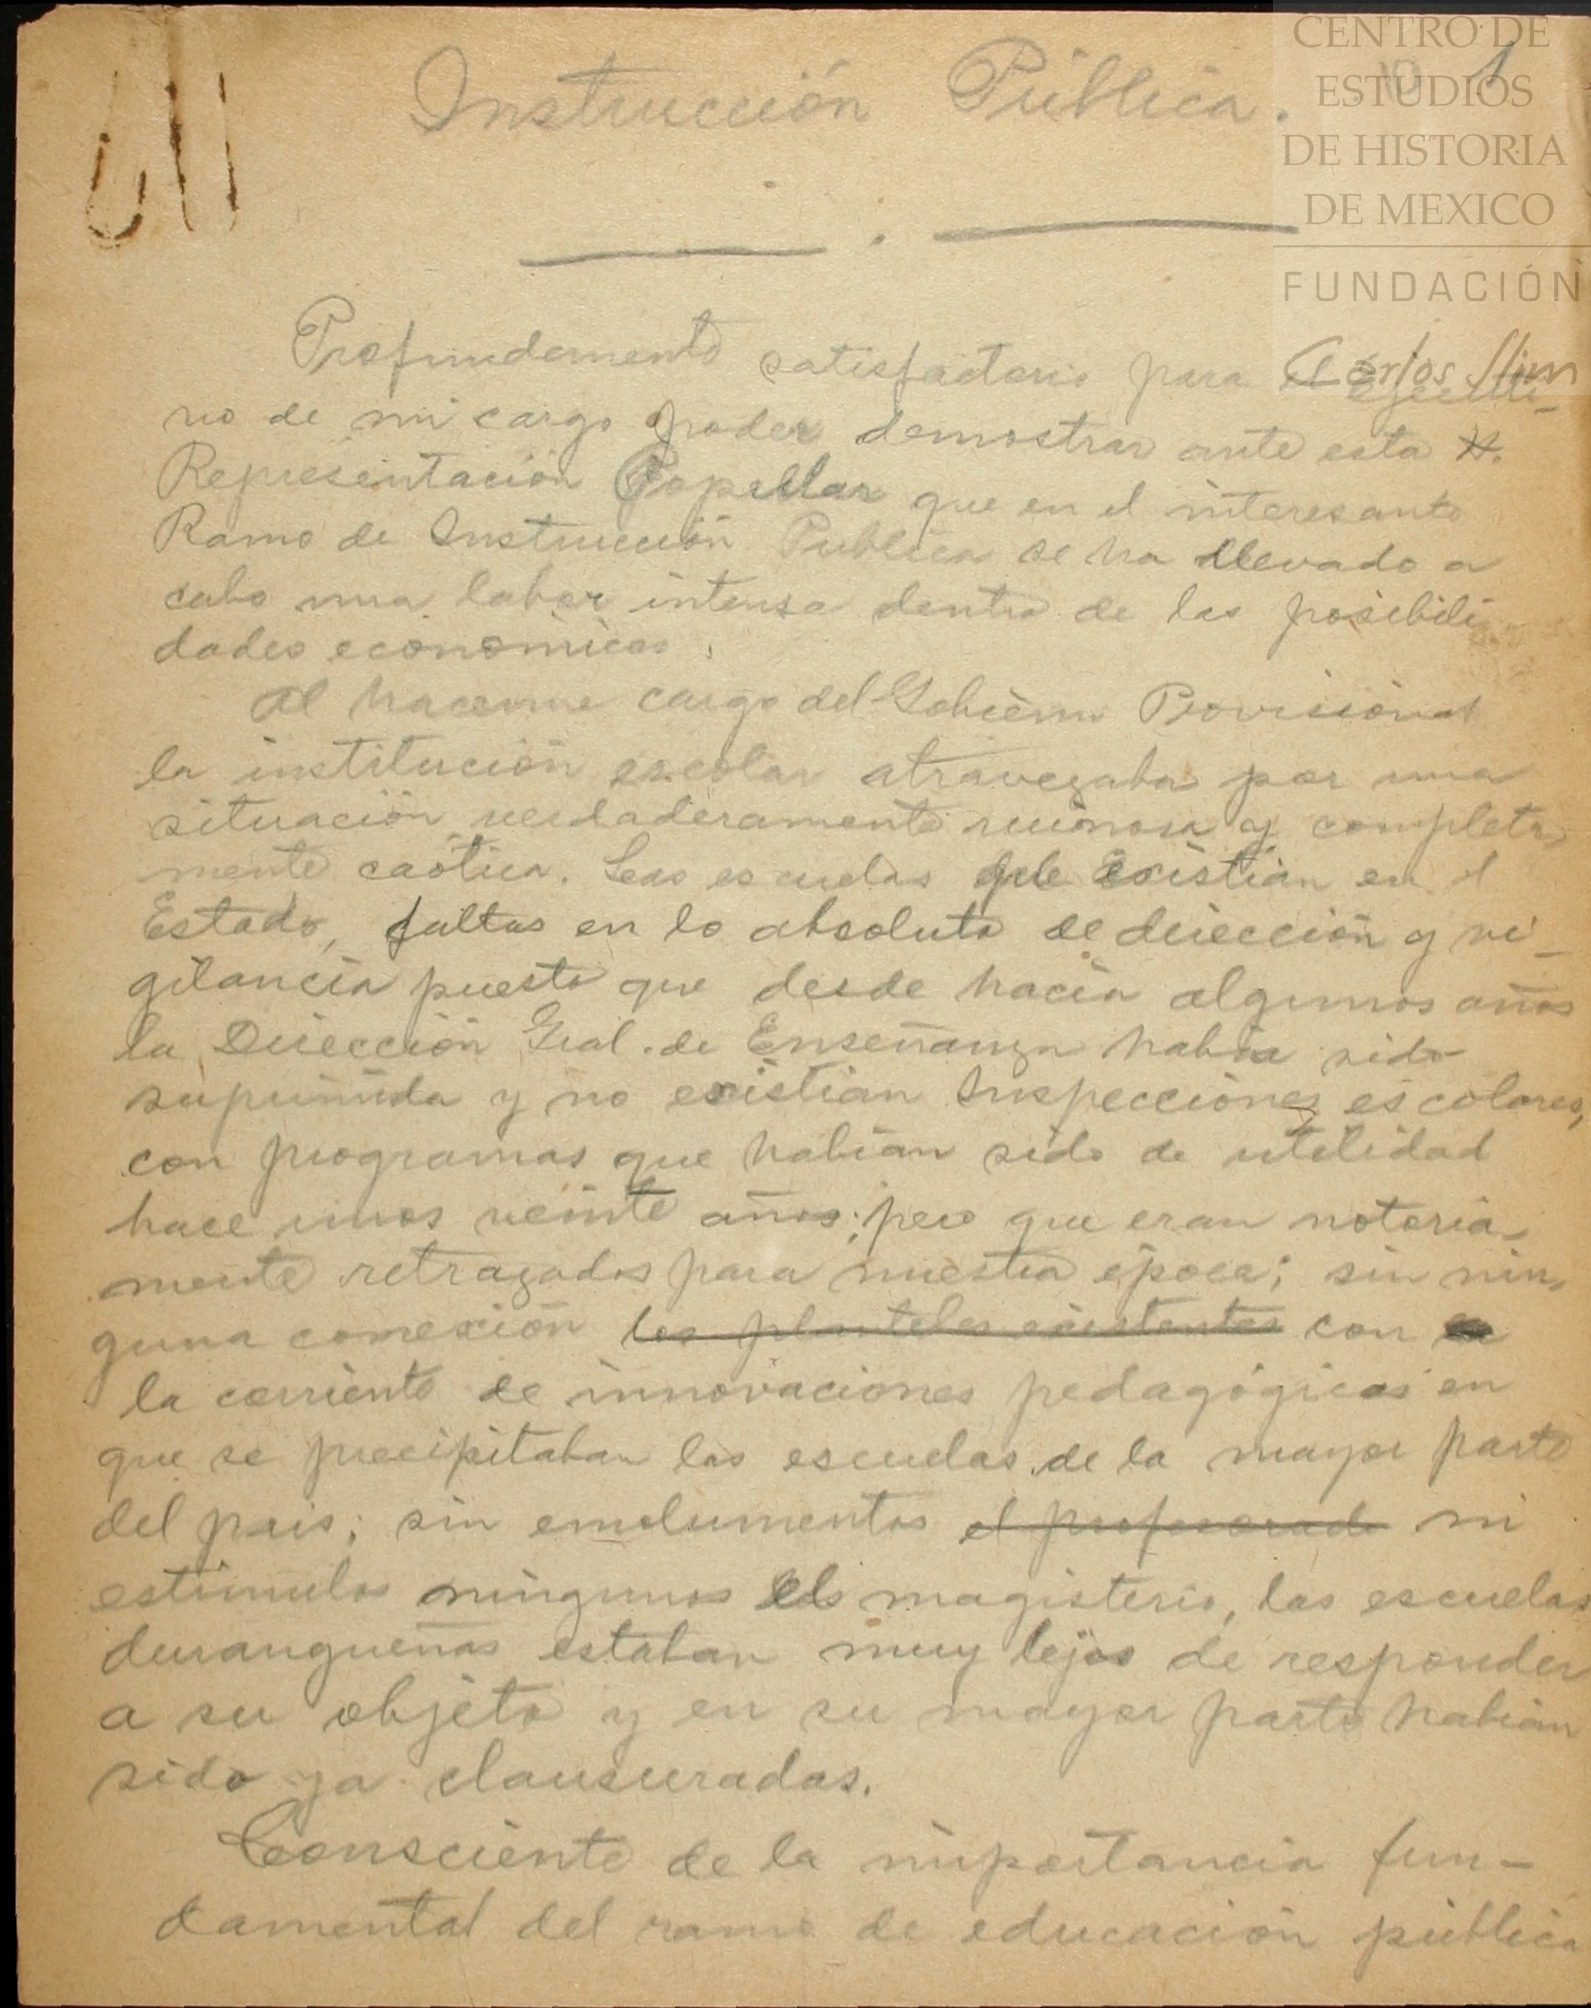 CENTRO DE
ESTUDIOS
DE HISTORIA
DE MEXICO
FUNDACIÓN
Carlos Slim
1
Instrucción Pública.
Profundamente satisfactorio para el Ejecuti-
vo de mi cargo poder demostrar ante esta H.
Representación Popular que en el interesante
Ramo de Instrucción Publica se ha llevado a
cabo una labor intensa dentro de las posibili
dades económicas.
Al hacerme cargo del Gobierno Provisional
la institución escolar atravezaba por una
situación verdaderamente ruinosa y completa-
mente caótica. Las escuelas que existian en el
Estado, faltas en lo absoluto de dirección y vi-
gilancia puesto que desde hacía algunos años
la Dirección Gral. de Enseñanza había sido
suprimida y no existian Inspecciones escolares,
con programas que habían sido de utilidad
hace unos veinte años; pero que eran notoria-
mente retrazados para nuestra época; sin nin-
guna conexión los planteles existentes con
la corriente de innovaciones pedagógicas en
que se precipitaban las escuelas de la mayor parte
del pais; sin emolumentos el profesorado ni
estimulos ningunos el magisterio, las escuelas
durangueñas estaban muy lejos de responder
a su objeto y en su mayor parte habían
sido ya clausuradas.
Consciente de la importancia fun-
damental del ramo de educación pública